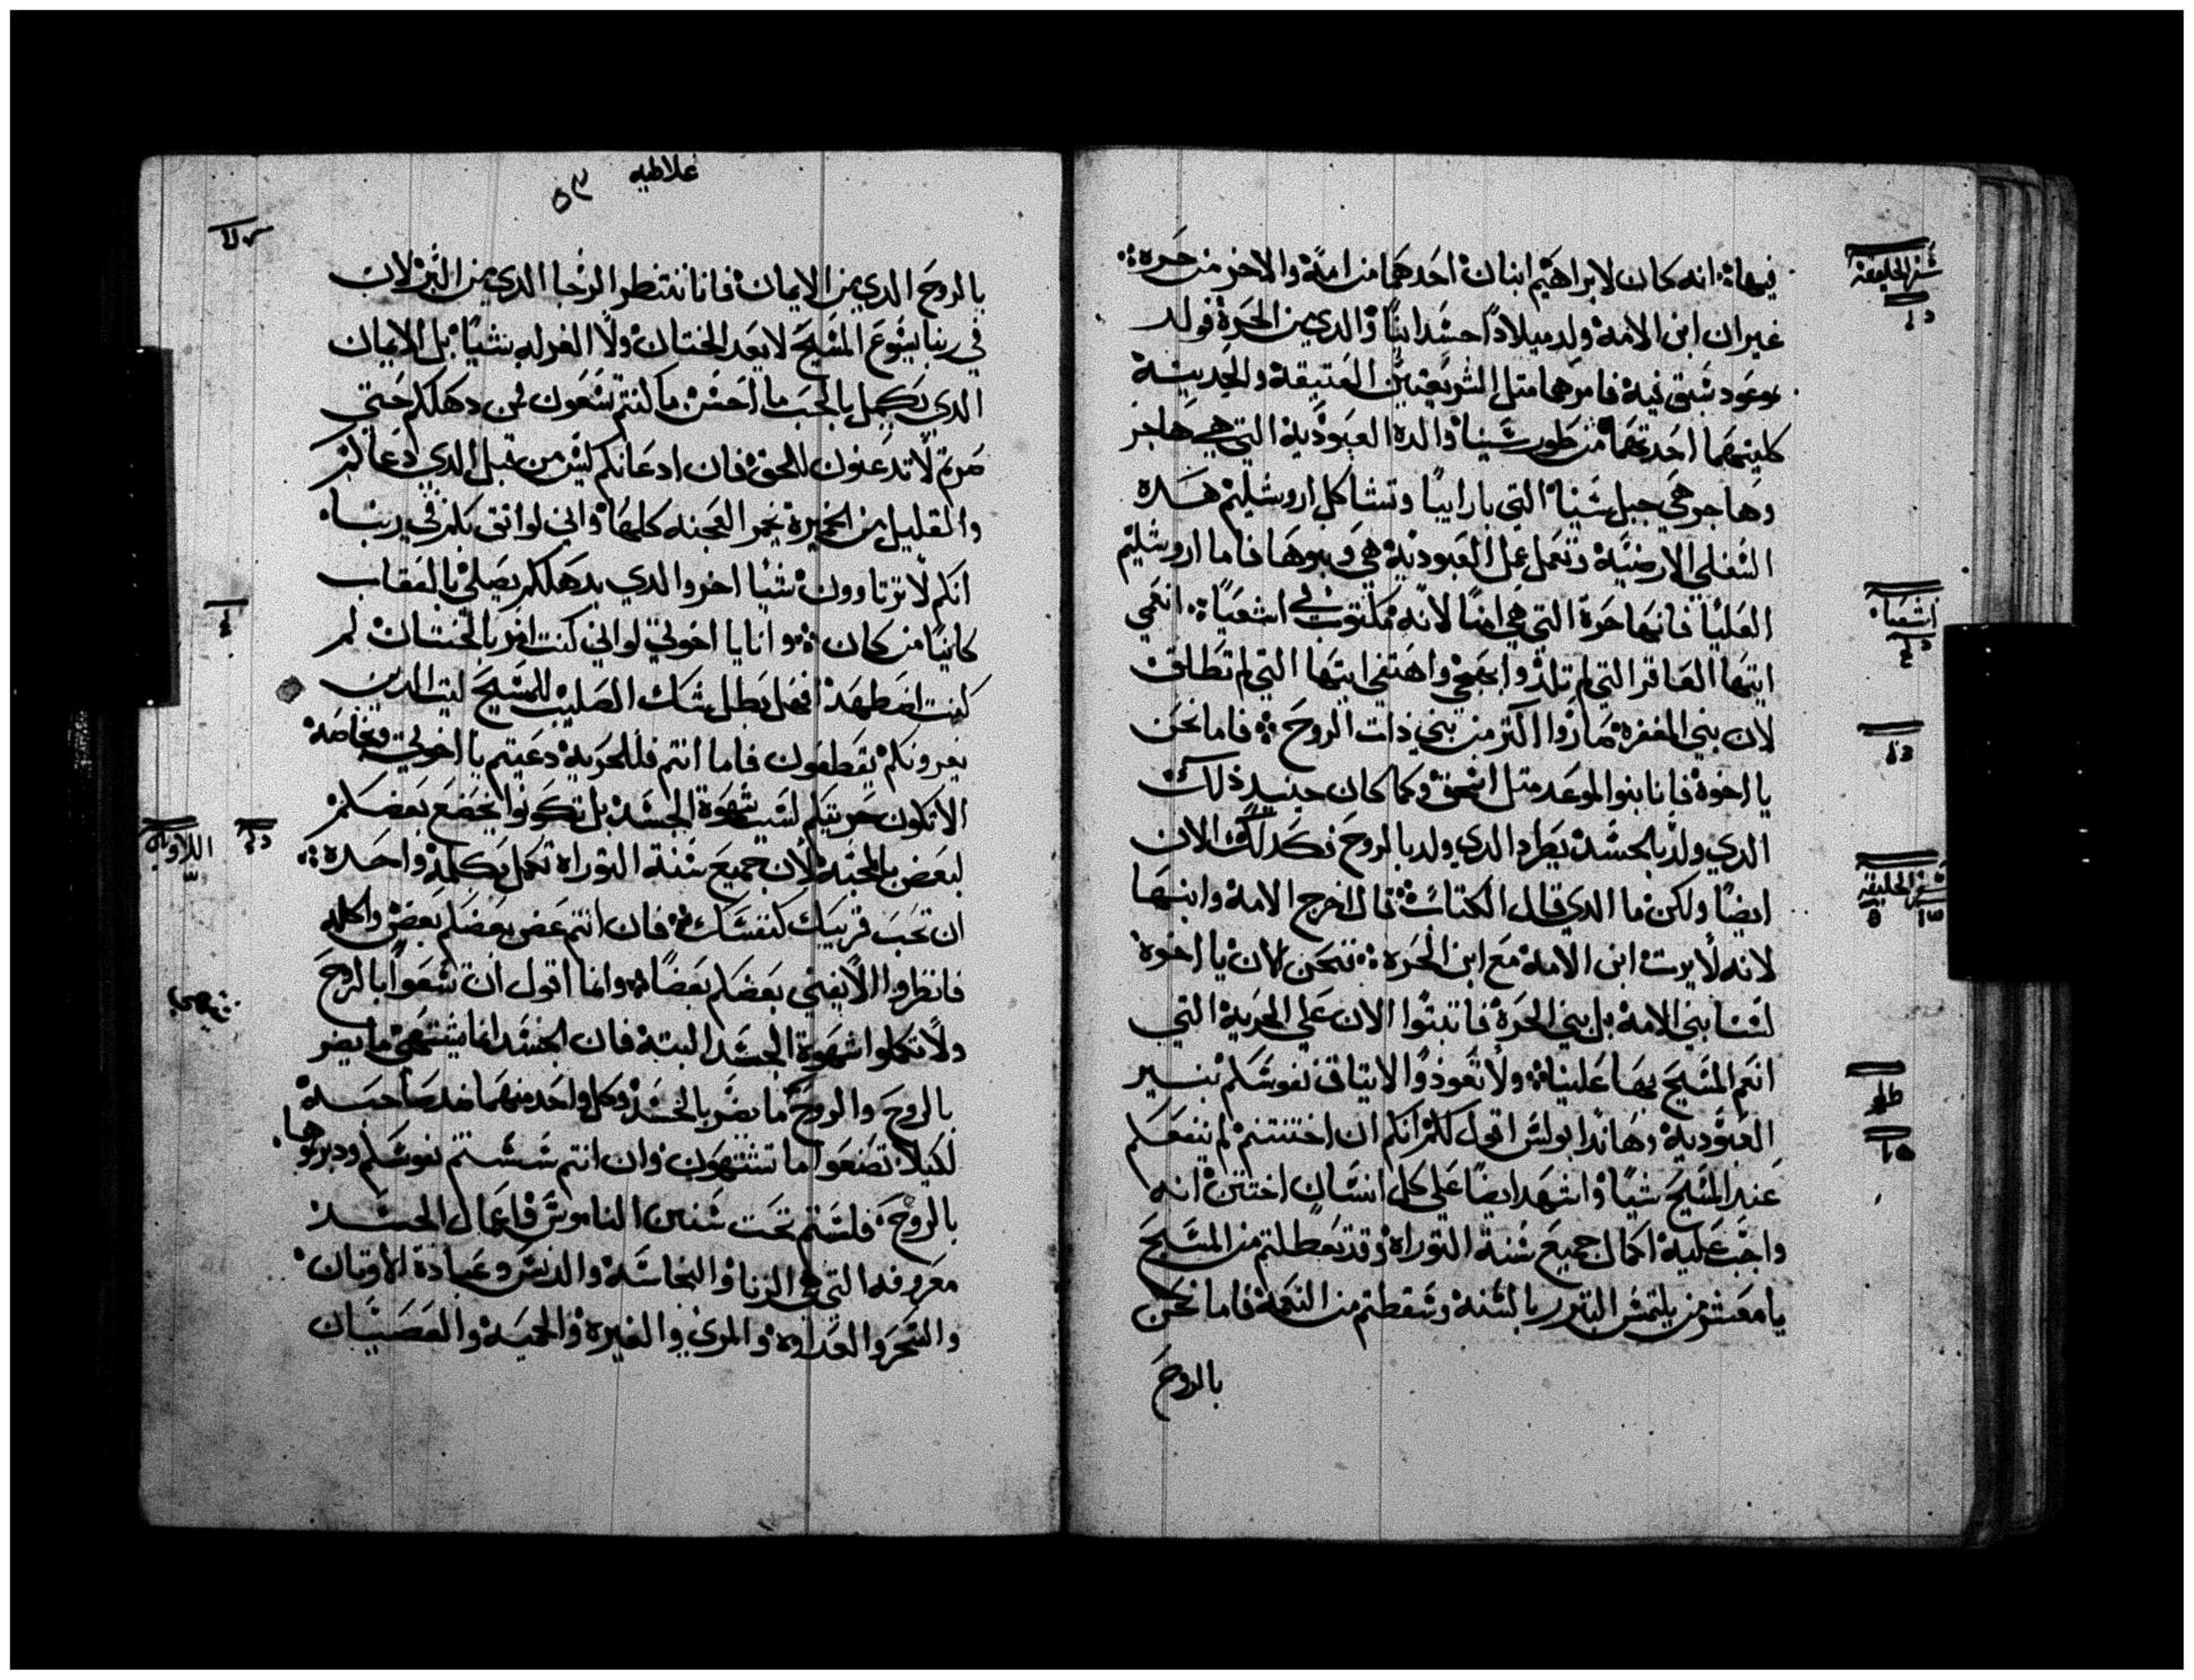 فيها؞ انه كان لابراهيم ابنان احدهما من امة والاخر من حره؞
غير ان ابن الامة ولد ميلادًا جسدانيًا والدي من الحرة فولد
بوعود سبق فيه فامرهما متل الشريعتين العتيقة والجديدة
كلتيهما احدتهما من طور سينا والدة العبودية التي هي هاجر
وهاجر هي جبل سينا التي بارابيا وتشاكل اروشليم هده
السفلي الارضية وتعمل عمل العبودية هي وبنوها فاما اروشليم
العليا فانها حرة التي هي امنا لانه مكتوب في اشعيا؞ انعمي
ايتها العاقر التي لم تلد وابتهجي واهتفي ايتها التي لم تطلق
لان بني المقفرة صاروا اكتر من بني ذات الروح؞ فاما نحن
يا اخوة فانا بنوا الموعد متل اسحق وكما كان حينيد ذلك
الدي ولد بالجسد يطرد الدي ولد بالروح فكدلك الان
ايضًا ولكن ما الدي قال الكتاب؞ قال اخرج الامة وابنها
لانه لا يرت ابن الامة مع ابن الحرة؞ فنحن الان يا اخوة
لسنا بني الامة بل بني الحرة فاتبتوا الان علي الحرية التي
انعم المسيح بها علينا؞ ولا تعودوا الا يتاتق نفوسكم بنير
العبودية وهاندا بولس اقول لكم انكم ان اختتنتم لم ينفعكم
عند المسيح شيًا واشهد ايضًا علي كل انسان اختتن انه
واجب عليه اكمال جميع سنة التوراه وقد تعطلتم من المسيح
يا معشر من يلتمس التبرر بالسنة وسقطتم من النعمة فاما نحن
بالروح
سفر الخليقة
اشعيا
سفر الخليقة
غلاطيه
٥٣
بالروح الدي من الايمان فانا ننتظر الرجا الدي من البر لان
في ربنا يسوع المسيح لا يعد الختان ولا الغرله شيًا بل الايمان
الدي يكمل بالحب ما احسن ما كنتم تسعون فمن دهلكم حتي
صرتم لا تدعنون للحق فان ادعانكم ليس من قبل الدي دعاكم
والقليل من الخميرة يخمر العجنه كلها واني لواتق بكم في ربنا
انكم لا ترتاوون شيا اخر والدي يدهلكم يصلي بالعقاب
كاينًا من كان؞ وانا يا اخوتي لو اني كنت اكرز بالختان لم
كنت اضطهد افهل بطل شك الصليب للمسيح ليت الدين
يغرونكم يقطعون فاما انتم فللحرية دعيتم يا اخوتي وبخاصة
الا تكون حريتكم لسبب شهوة الجسد بل تكونوا يخضع بعضكم
لبعض بالمحبة لان جميع سنة التوراه تكمل بكلمة واحده؞
ان تحب قريبك كنفسك؞ فان انتم عض بعضكم بعض واكله
فانظروا الا يفني بعضكم بعضًا؞ وانما اقول ان تسعوا بالروح
ولا تكملوا شهوة الجسد البتة فان الجسد انما يشتهي ما يضر
بالروح والروح ما يضر بالجسد وكل واحد منهما ضد صاحبه
لكيلا تصنعوا ما تشتهون وان انتم سستم نفوسكم ودبرتوها
بالروح فلستم تحت سنن الناموس فاعمال الجسد
معروفه التي هي الزنا والنجاسة والدنس وعبادة الاوتان
والسحر والعداوه والمري والغيرة والحمية والعصيان
اللاويين